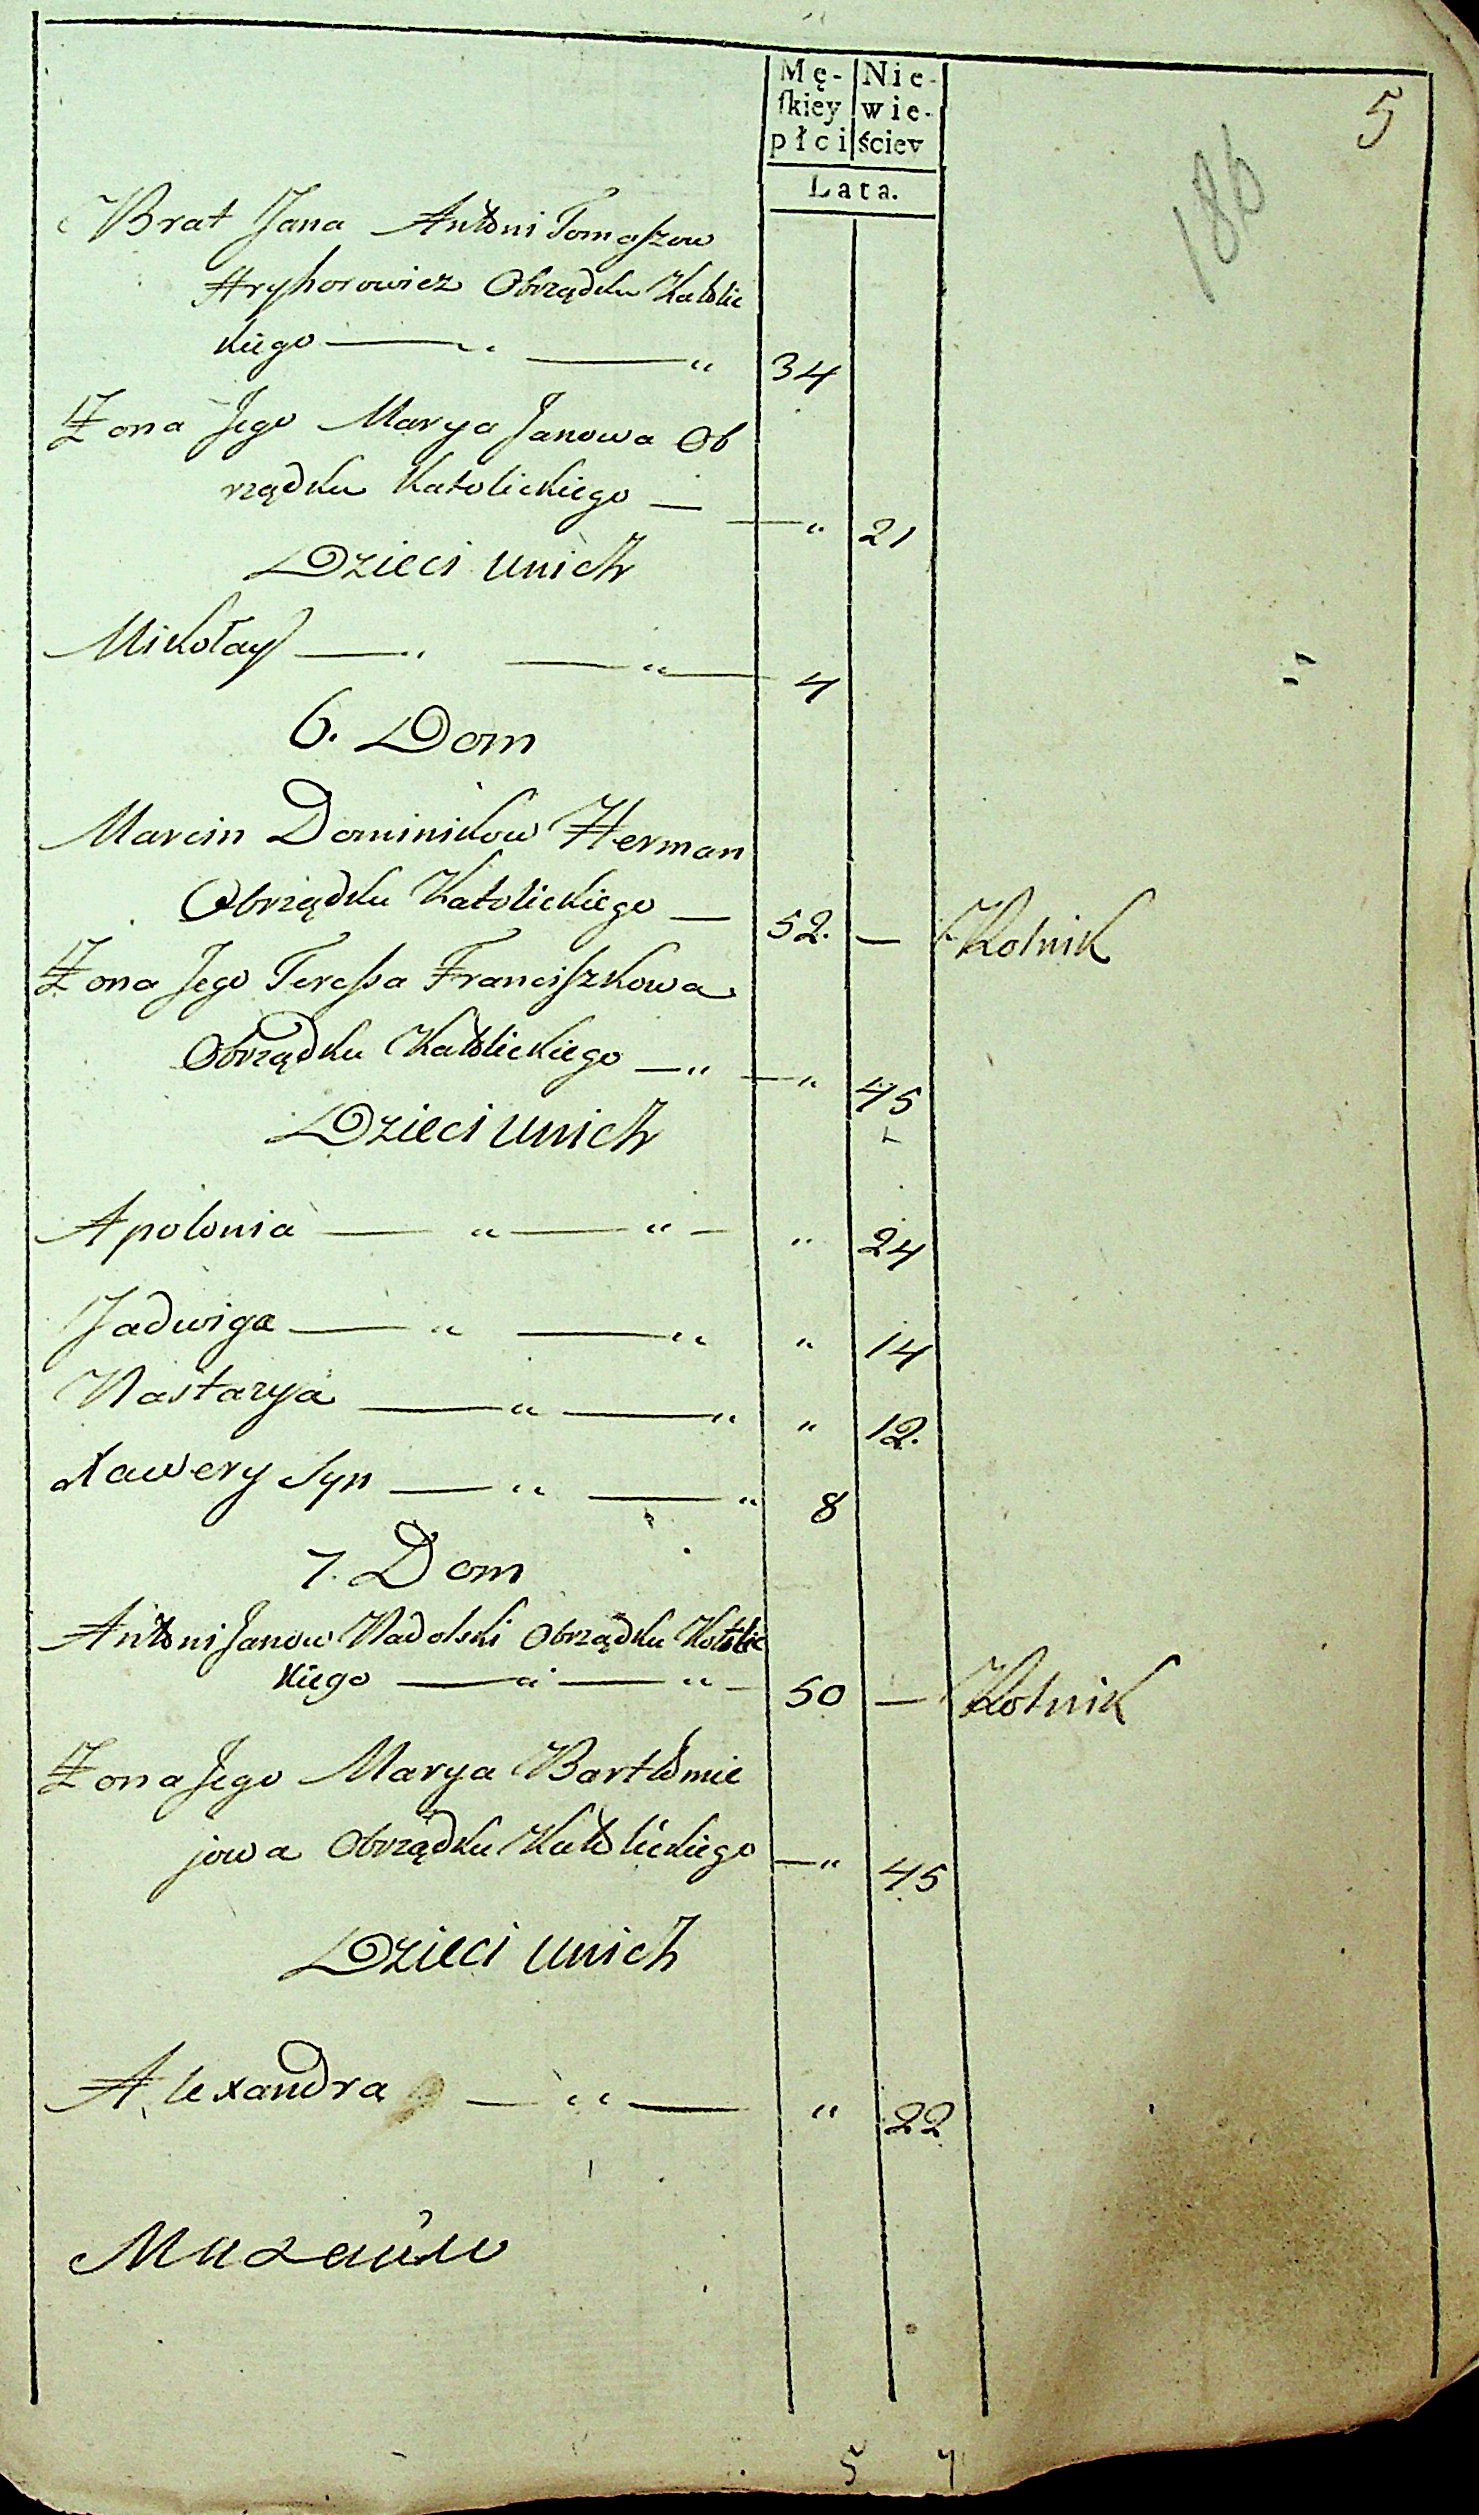 5
186
Mę- Nie-
ſkiey wie-
płci ściey
Lata.
Brat Jana Antoni Tomaszow
Hryhorowicz Obrządku Katolic
kiego —" —" 34
Żona Jego Marya Janowa Ob
rządku Katolickiego — —" 21
Dzieci unich
Mikołay —" —"— 4
6. Dom
Marcin Dominikow Herman
Obrządku Katolickiego — 52. — Rolnik
Żona Jego Teressa Franciszkowa
Obrządku Katolickiego —" —" 45
Dzieci unich
Apolonia — " — " — " 24
Jadwiga — " — " " 14
Nastazya — " — " " 12.
Xawery Syn — " — " 8
7. Dom
Antoni Janow Nadolski Obrządku Katolic
kiego — " — " — 50 — Rolnik
Żona Jego Marya Bartłomie
jowa Obrządku Katolickiego —" 45
Dzieci unich
Alexandra — " — " 22
5 7